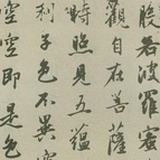 般若波羅蜜
觀自在菩薩
時照見五蘊
利子色不異空
空空即是色